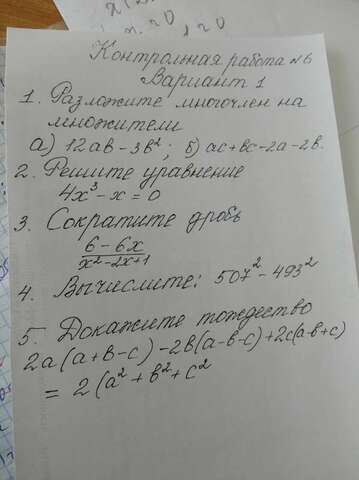 Контролная работа №6
Вариант 1
1. Разложите многочлен на
множители
а) 12ab-3b²; б) ac+bc-2a-2b.
2. Решите уравнение
4x³-x=0
3. Сократите дробь
6-6x
x²-2x+1
4. Вычислите: 507²-493²
5. Докажите тождество
2a(a+b-c)-2b(a-b-c)+2c(a-b+c)
=2(a²+b²+c²